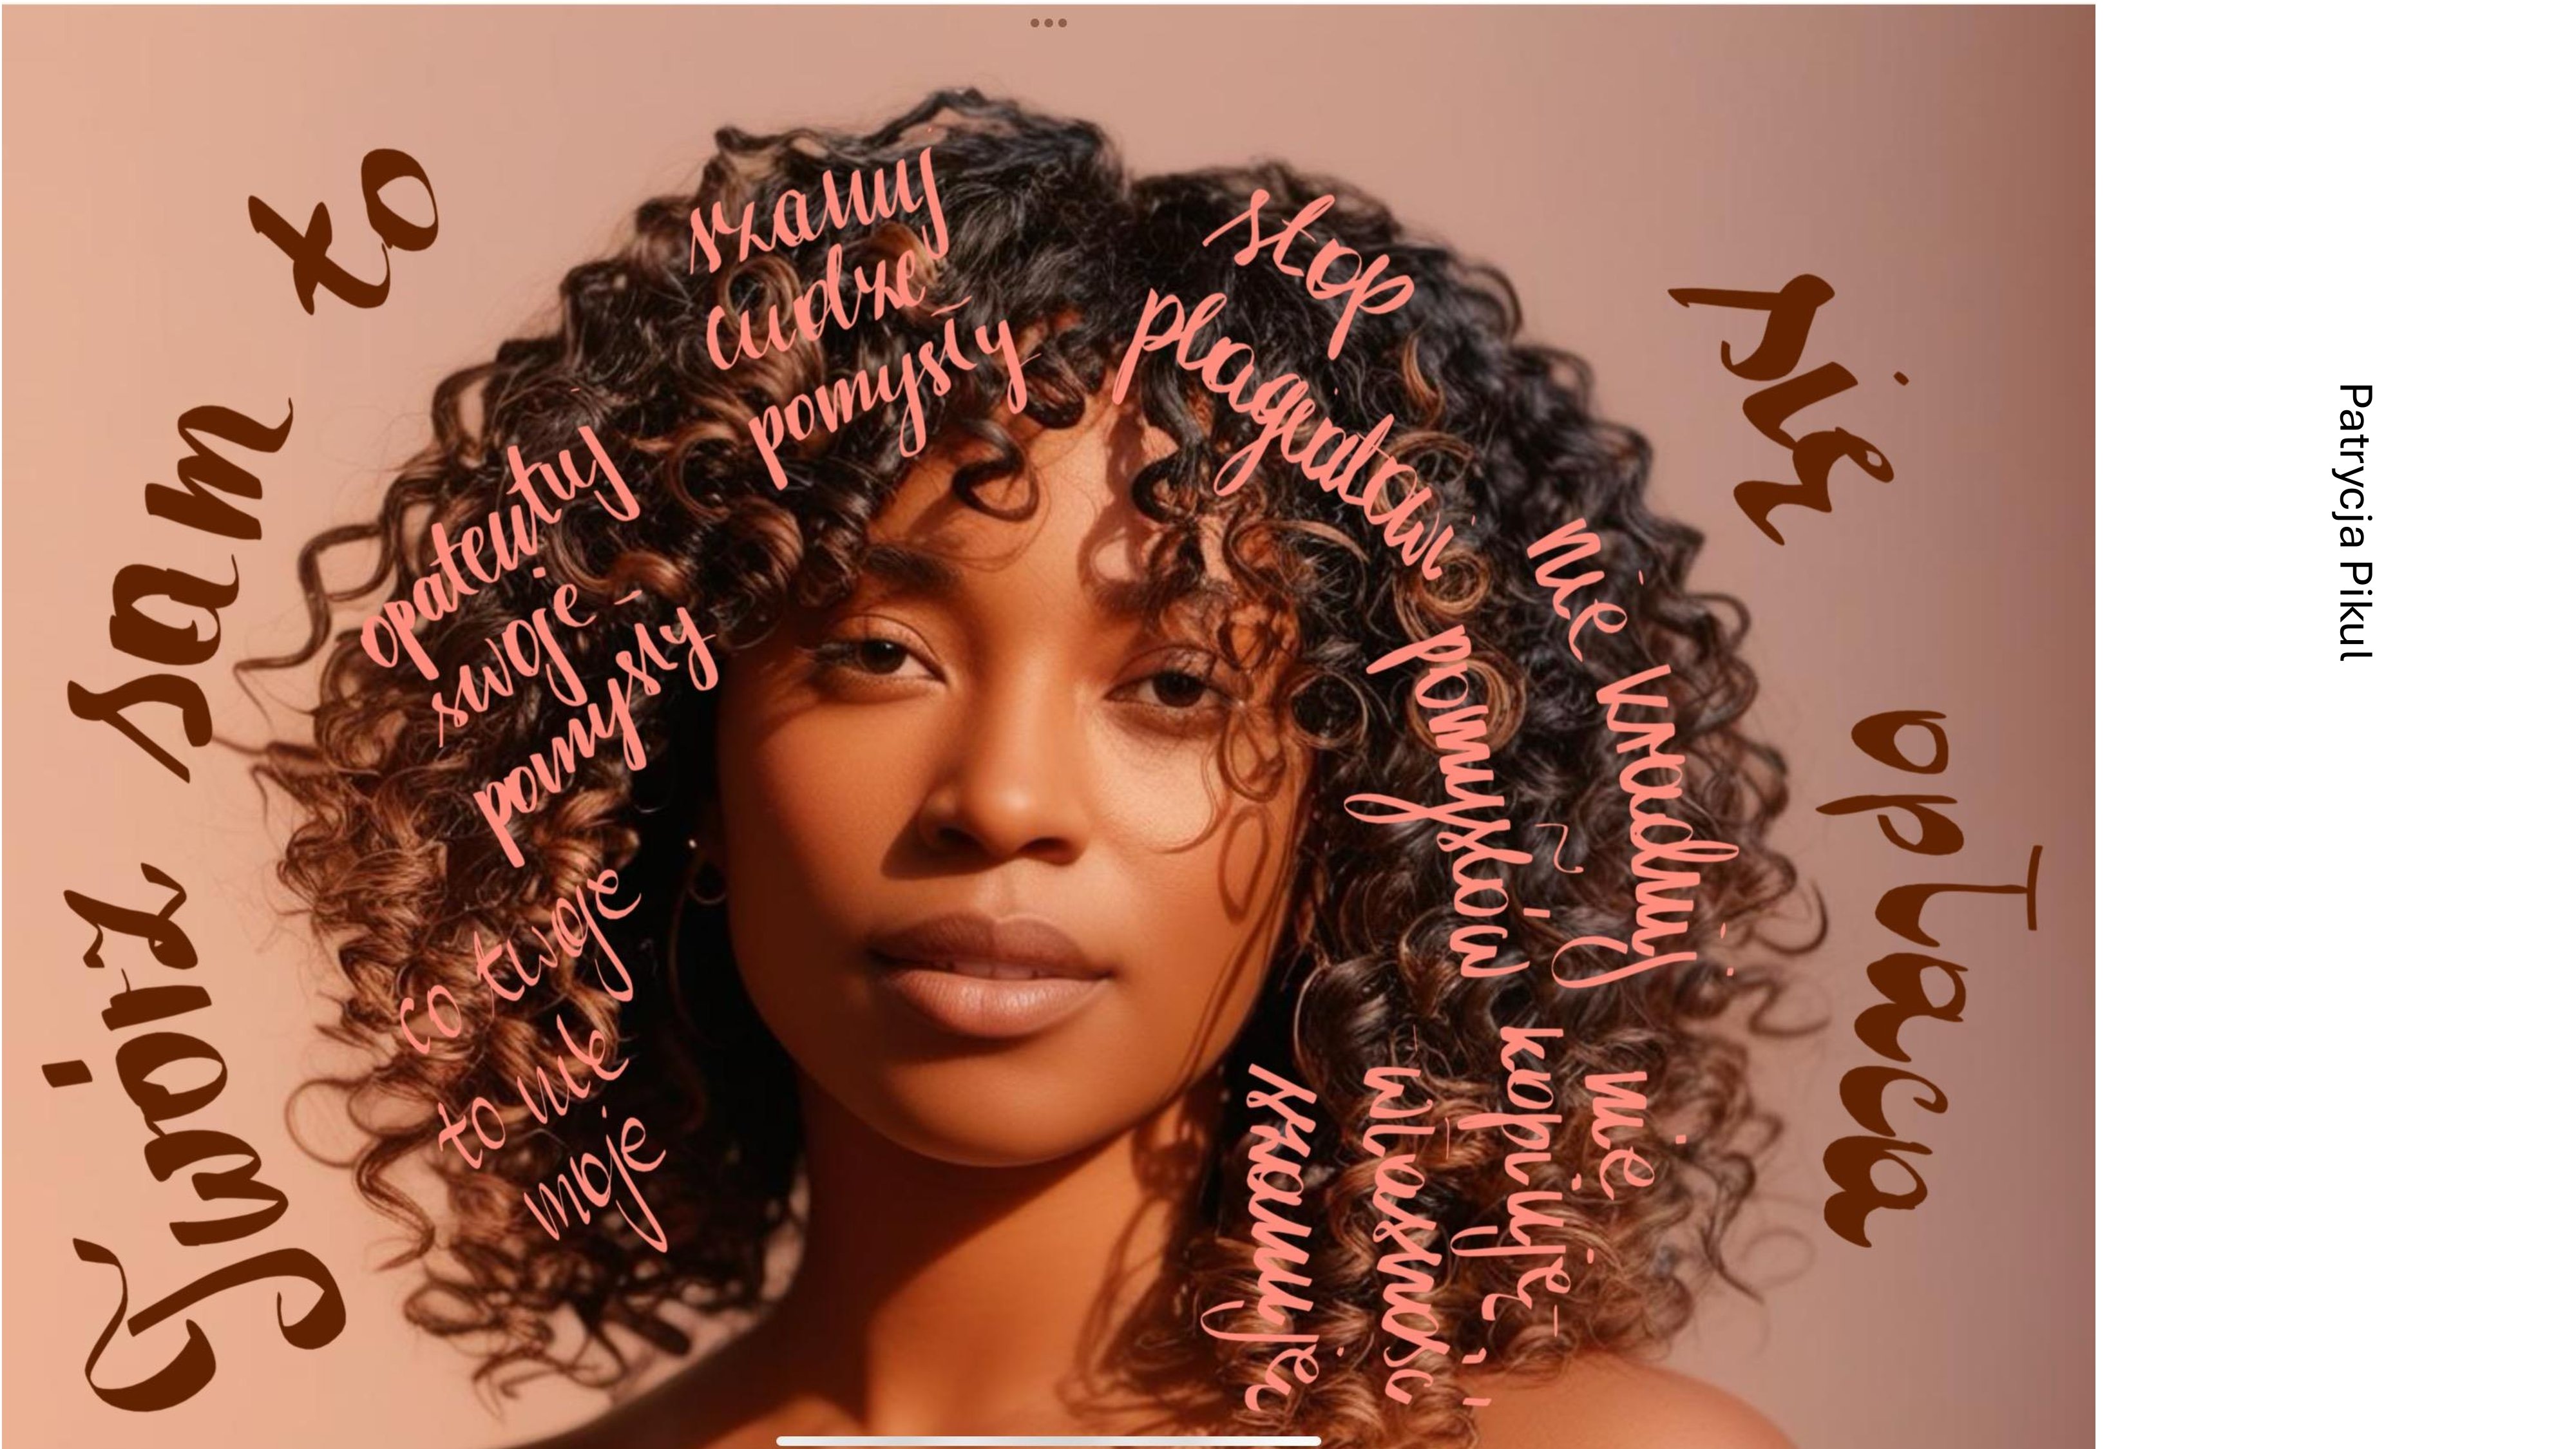 Stwórz sam to
się opłaca
szanuj
cudze
pomysły
opatentuj
swoje
pomysły
co twoje
to nie
moje
stop
plagiatowi
nie kradnij
pomysłów
nie
kopiuję
własność
szanuję
Patrycja Pikul